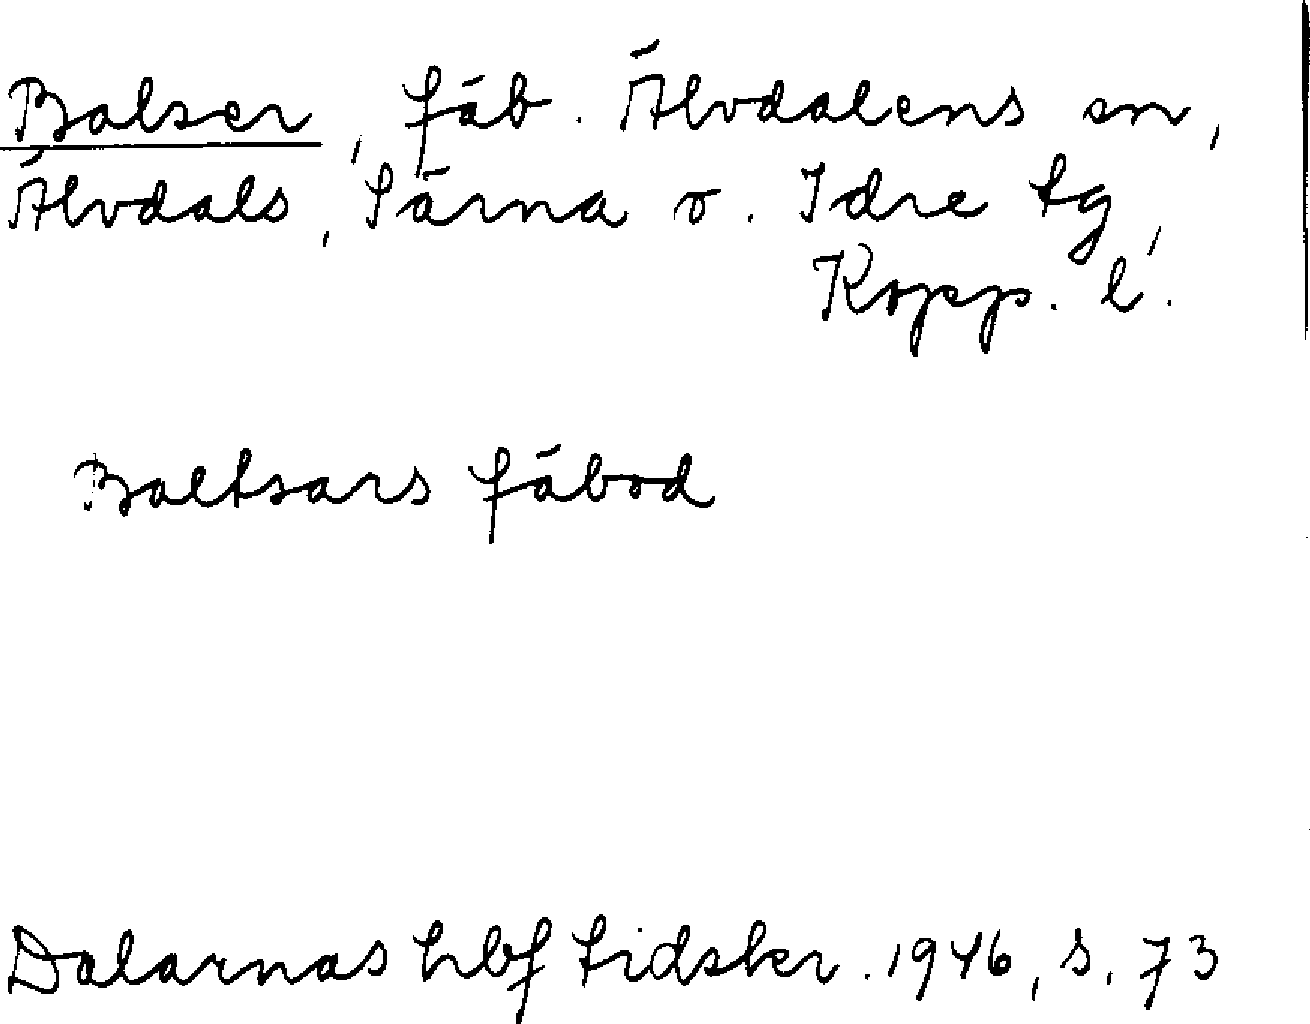 Balser, fäb. Älvdalens sn,
Älvdals, Särna o. Idre tg,
Kopp. l.
Baltsars fäbod
Dalarnas hbf tidskr. 1946, s. 73